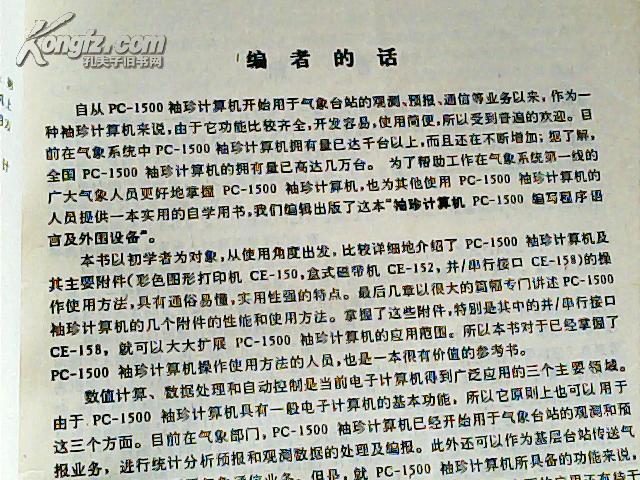 Kongfz.com
孔夫子旧书网
编者的话
自从 PC-1500 袖珍计算机开始用于气象台站的观测、预报、通信等业务以来，作为一
种袖珍计算机来说，由于它功能比较齐全，开发容易，使用简便，所以受到普遍的欢迎。目
前在气象系统中 PC-1500 袖珍计算机拥有量已达千台以上，而且还在不断增加；据了解，
全国 PC-1500 袖珍计算机的拥有量已高达几万台。为了帮助工作在气象系统第一线的
广大气象人员更好地掌握 PC-1500 袖珍计算机，也为其他使用 PC-1500 袖珍计算机的
人员提供一本实用的自学用书，我们编辑出版了这本“袖珍计算机 PC-1500 编写程序语
言及外围设备”。
本书以初学者为对象，从使用角度出发，比较详细地介绍了 PC-1500 袖珍计算机及
其主要附件（彩色图形打印机 CE-150，盒式磁带机 CE-152，并/串行接口 CE-158）的操
作使用方法，具有通俗易懂，实用性强的特点。最后几章以很大的篇幅专门讲述 PC-1500
袖珍计算机的几个附件的性能和使用方法。掌握了这些附件，特别是其中的并/串行接口
CE-158，就可以大大扩展 PC-1500 袖珍计算机的应用范围。所以本书对于已经掌握了
PC-1500 袖珍计算机操作使用方法的人员，也是一本很有价值的参考书。
数值计算、数据处理和自动控制是当前电子计算机得到广泛应用的三个主要领域。
由于 PC-1500 袖珍计算机具有一般电子计算机的基本功能，所以它原则上也可以用于
这三个方面。目前在气象部门，PC-1500 袖珍计算机已经开始用于气象台站的观测和预
报业务，进行统计分析预报和观测数据的处理及编报。此外还可以作为基层台站传送气
通信业务。但是，就 PC-1500 袖珍计算机所具备的功能来说，